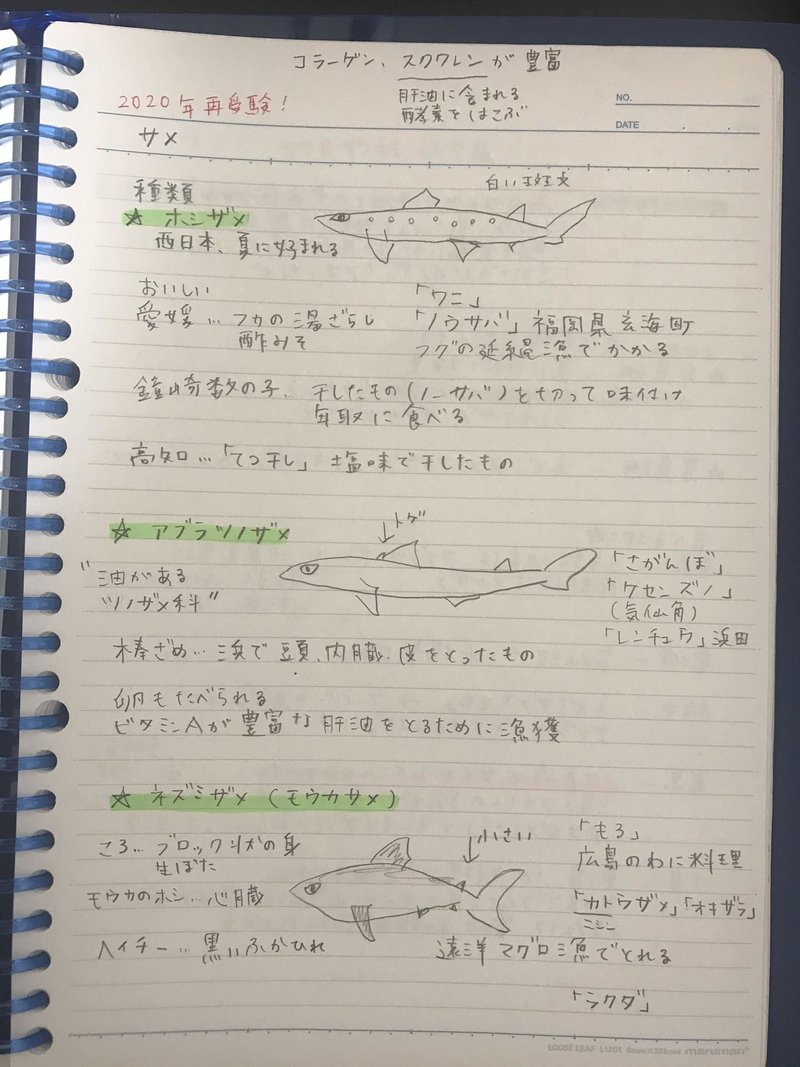 コラーゲン、スクワレンが豊富
2020年再受験!
肝油に含まれる
酵素をはこぶ
NO.
DATE
サメ
種類
白い斑文
☆ ホシザメ
西日本、夏に好まれる
おいしい
愛媛…フカの湯ざらし
酢みそ
「ワニ」
「ノウサバ」福岡県玄海町
フグの延縄漁でかかる
鐘崎数の子…干したもの(ノーサバ)を切って味付け
年取に食べる
高知…「てつ干し」塩味で干したもの
☆ アブラツノザメ
トゲ
"油がある
ツノザメ科"
「さがんぼ」
「ケセンズノ」
(気仙角)
「レンチョウ」浜田
棒ざめ…浜で頭、内臓、皮をとったもの
卵もたべられる
ビタミンAが豊富な肝油をとるために漁獲
☆ ネズミザメ(モウカサメ)
ころ…ブロック状の身
生ぼた
小さい
「もろ」
広島のわに料理
モウカのホシ…心臓
「カトウザメ」「オキザラ」
ニシン
ヘイチー…黒いふかひれ
遠洋マグロ漁でとれる
「ラクダ」
LOOSE LEAF L1201 6mm×26lined maruman